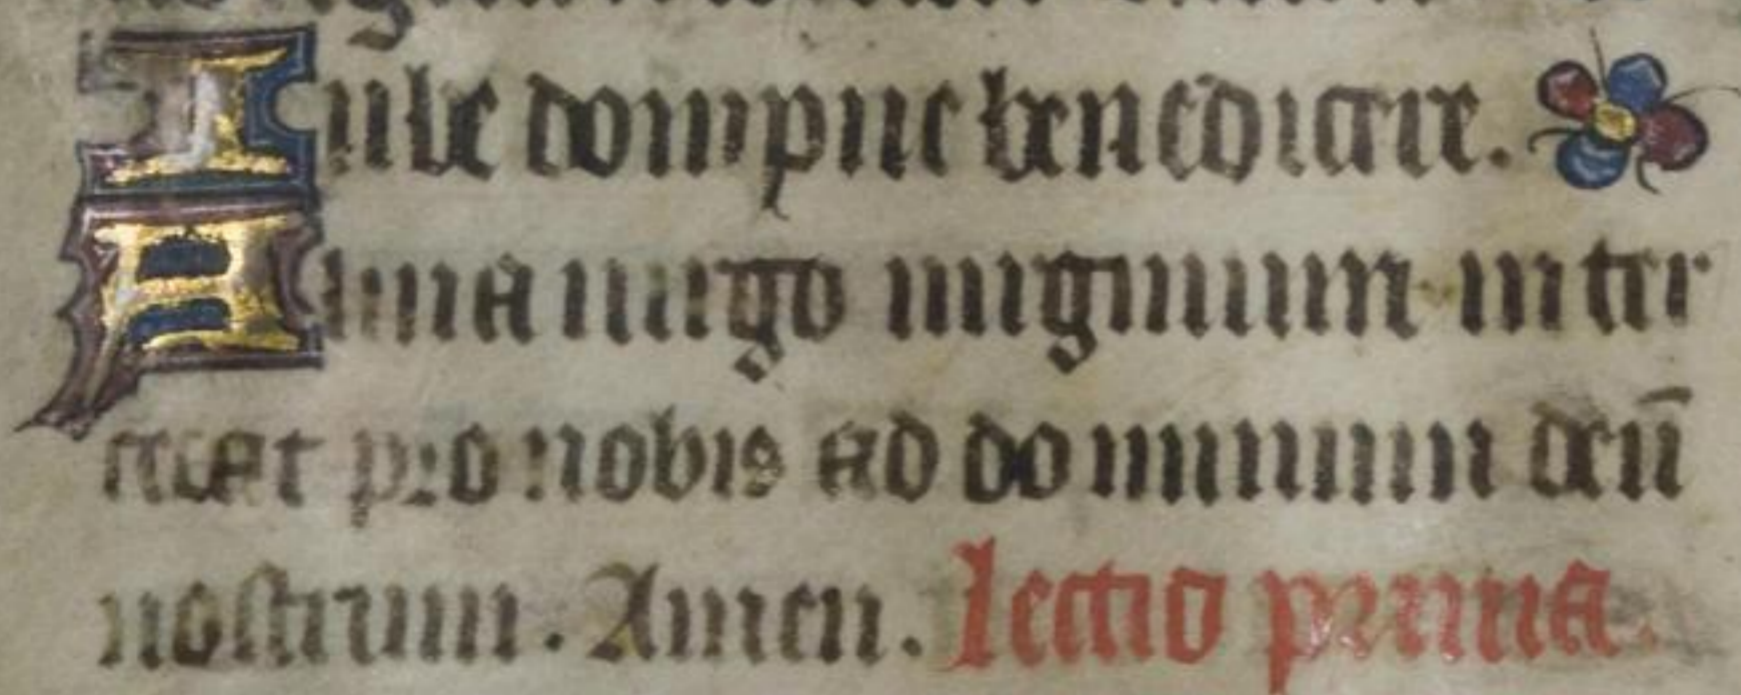 Iube dompne benedicere.
Alma uirgo uirginum inter
cedat pro nobis ad dominum deū
nostrum. Amen. lectio prima.